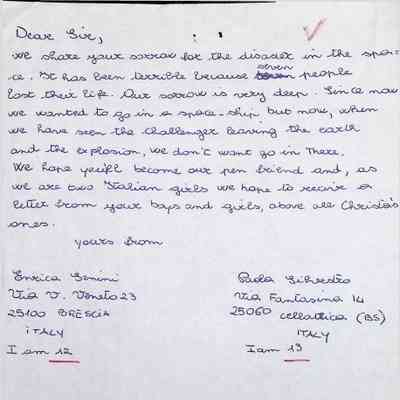 Dear Sir,
we share your sorrow for the disaster in the spa=
ce. It has been terrible because seven people
lost their life. Our sorrow is very deep. Since now
we wanted to go in a space-ship, but now, when
we have seen the Challenger leaving the earth
and the explosion, we don't want go in there.
We hope you'll become our pen friend and, as
we are two Italian girls we hope to receive a
letter from your boys and girls, above all Christa's
ones.
yours from
Enrica Senini
Via V. Veneto 23
25100 BRESCIA
ITALY
I am 12
Paola
Via Fantasina 14
25060 Cellatica (BS)
ITALY
I am 13